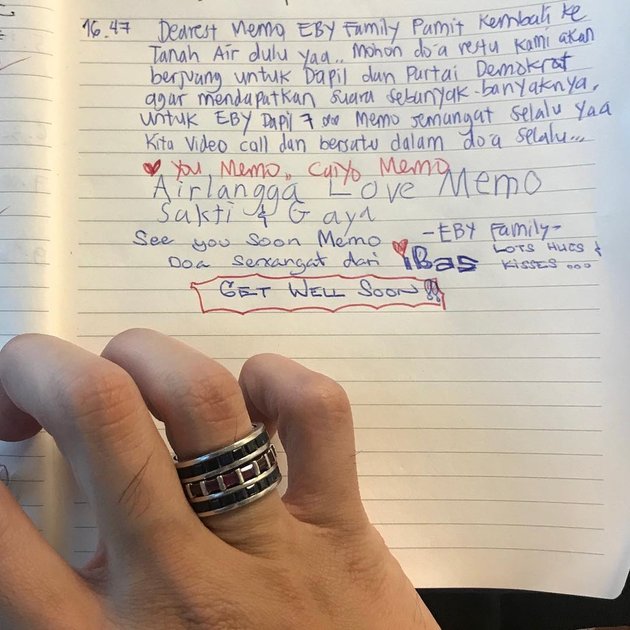 16.47 Dearest Memo EBY Family Pamit Kembali ke
Tanah Air dulu yaa.. Mohon do'a restu kami akan
berjuang untuk Dapil dan Partai Demokrat
agar mendapatkan suara sebanyak-banyaknya.
Untuk EBY Dapil 7 Memo semangat selalu yaa
Kita Video call dan bersatu dalam do'a selalu...
You Memo, Caiyo Memo
Airlangga Love Memo
Sakti & Gaya
See you soon Memo -EBY Family-
Doa Semangat dari iBas LOTS HUGS &
KISSES ...
GET WELL SOON!!